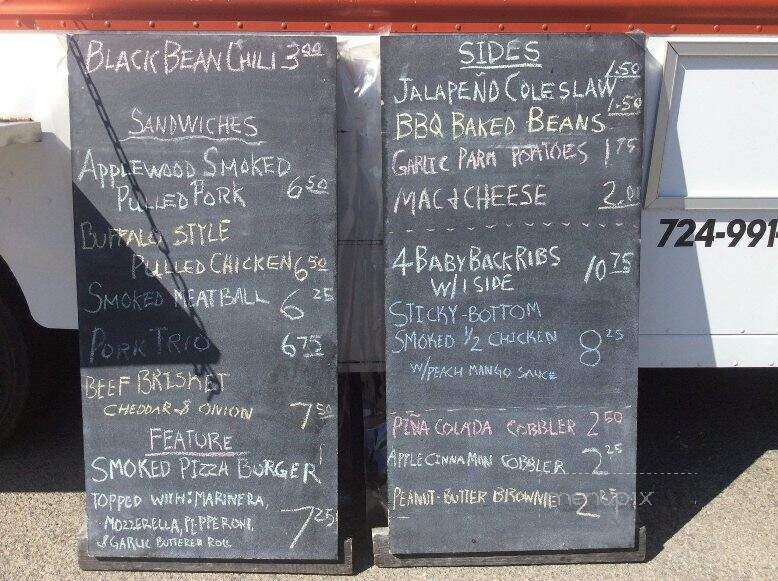 BLACK BEAN CHILI 3.00
SANDWICHES
APPLEWOOD SMOKED
PULLED PORK 6.50
BUFFALO STYLE
PULLED CHICKEN 6.50
SMOKED MEATBALL 6.25
PORK TRIO 6.75
BEEF BRISKET
CHEDDAR & ONION 7.50
FEATURE
SMOKED PIZZA BURGER!
TOPPED WITH: MARINERA,
MOZZERELLA, PEPPERONI,
& GARLIC BUTTERED ROLL 7.25
SIDES
JALAPEÑO COLESLAW 1.50
BBQ BAKED BEANS 1.50
GARLIC PARM POTATOES 1.75
MAC & CHEESE 2.00
4 BABY BACK RIBS
W/1 SIDE 10.75
STICKY-BOTTOM
SMOKED 1/2 CHICKEN 8.25
W/PEACH MANGO SAUCE
PIÑA COLADA COBBLER 2.50
APPLE CINNAMON COBBLER 2.25
PEANUT-BUTTER BROWNIE
724-991-